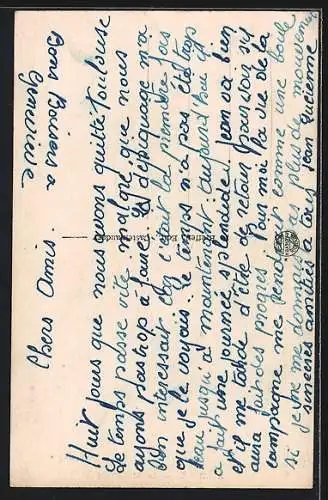 Chers Amis.
Bons Baisers a
Geneviève
Huit jours que nous avons quitté Toulouse
Le temps passe vite malgré que nous
ayons pas trop à faire. Le dépiquage m'a
bien interessait car c'était la première fois
que je le voyais. le temps n'a pas été trop
beau jusqu'à maintenant; aujourd'hui il
a fait une journée splendide. Jean va bien
et il me tarde d'être de retour pour voir s'il
aura fait des progrès. Pour moi la vie de la
campagne me rend comme une boule
si je ne me donnais plus de mouvement
sincères amitiés à tous Jean Lucienne